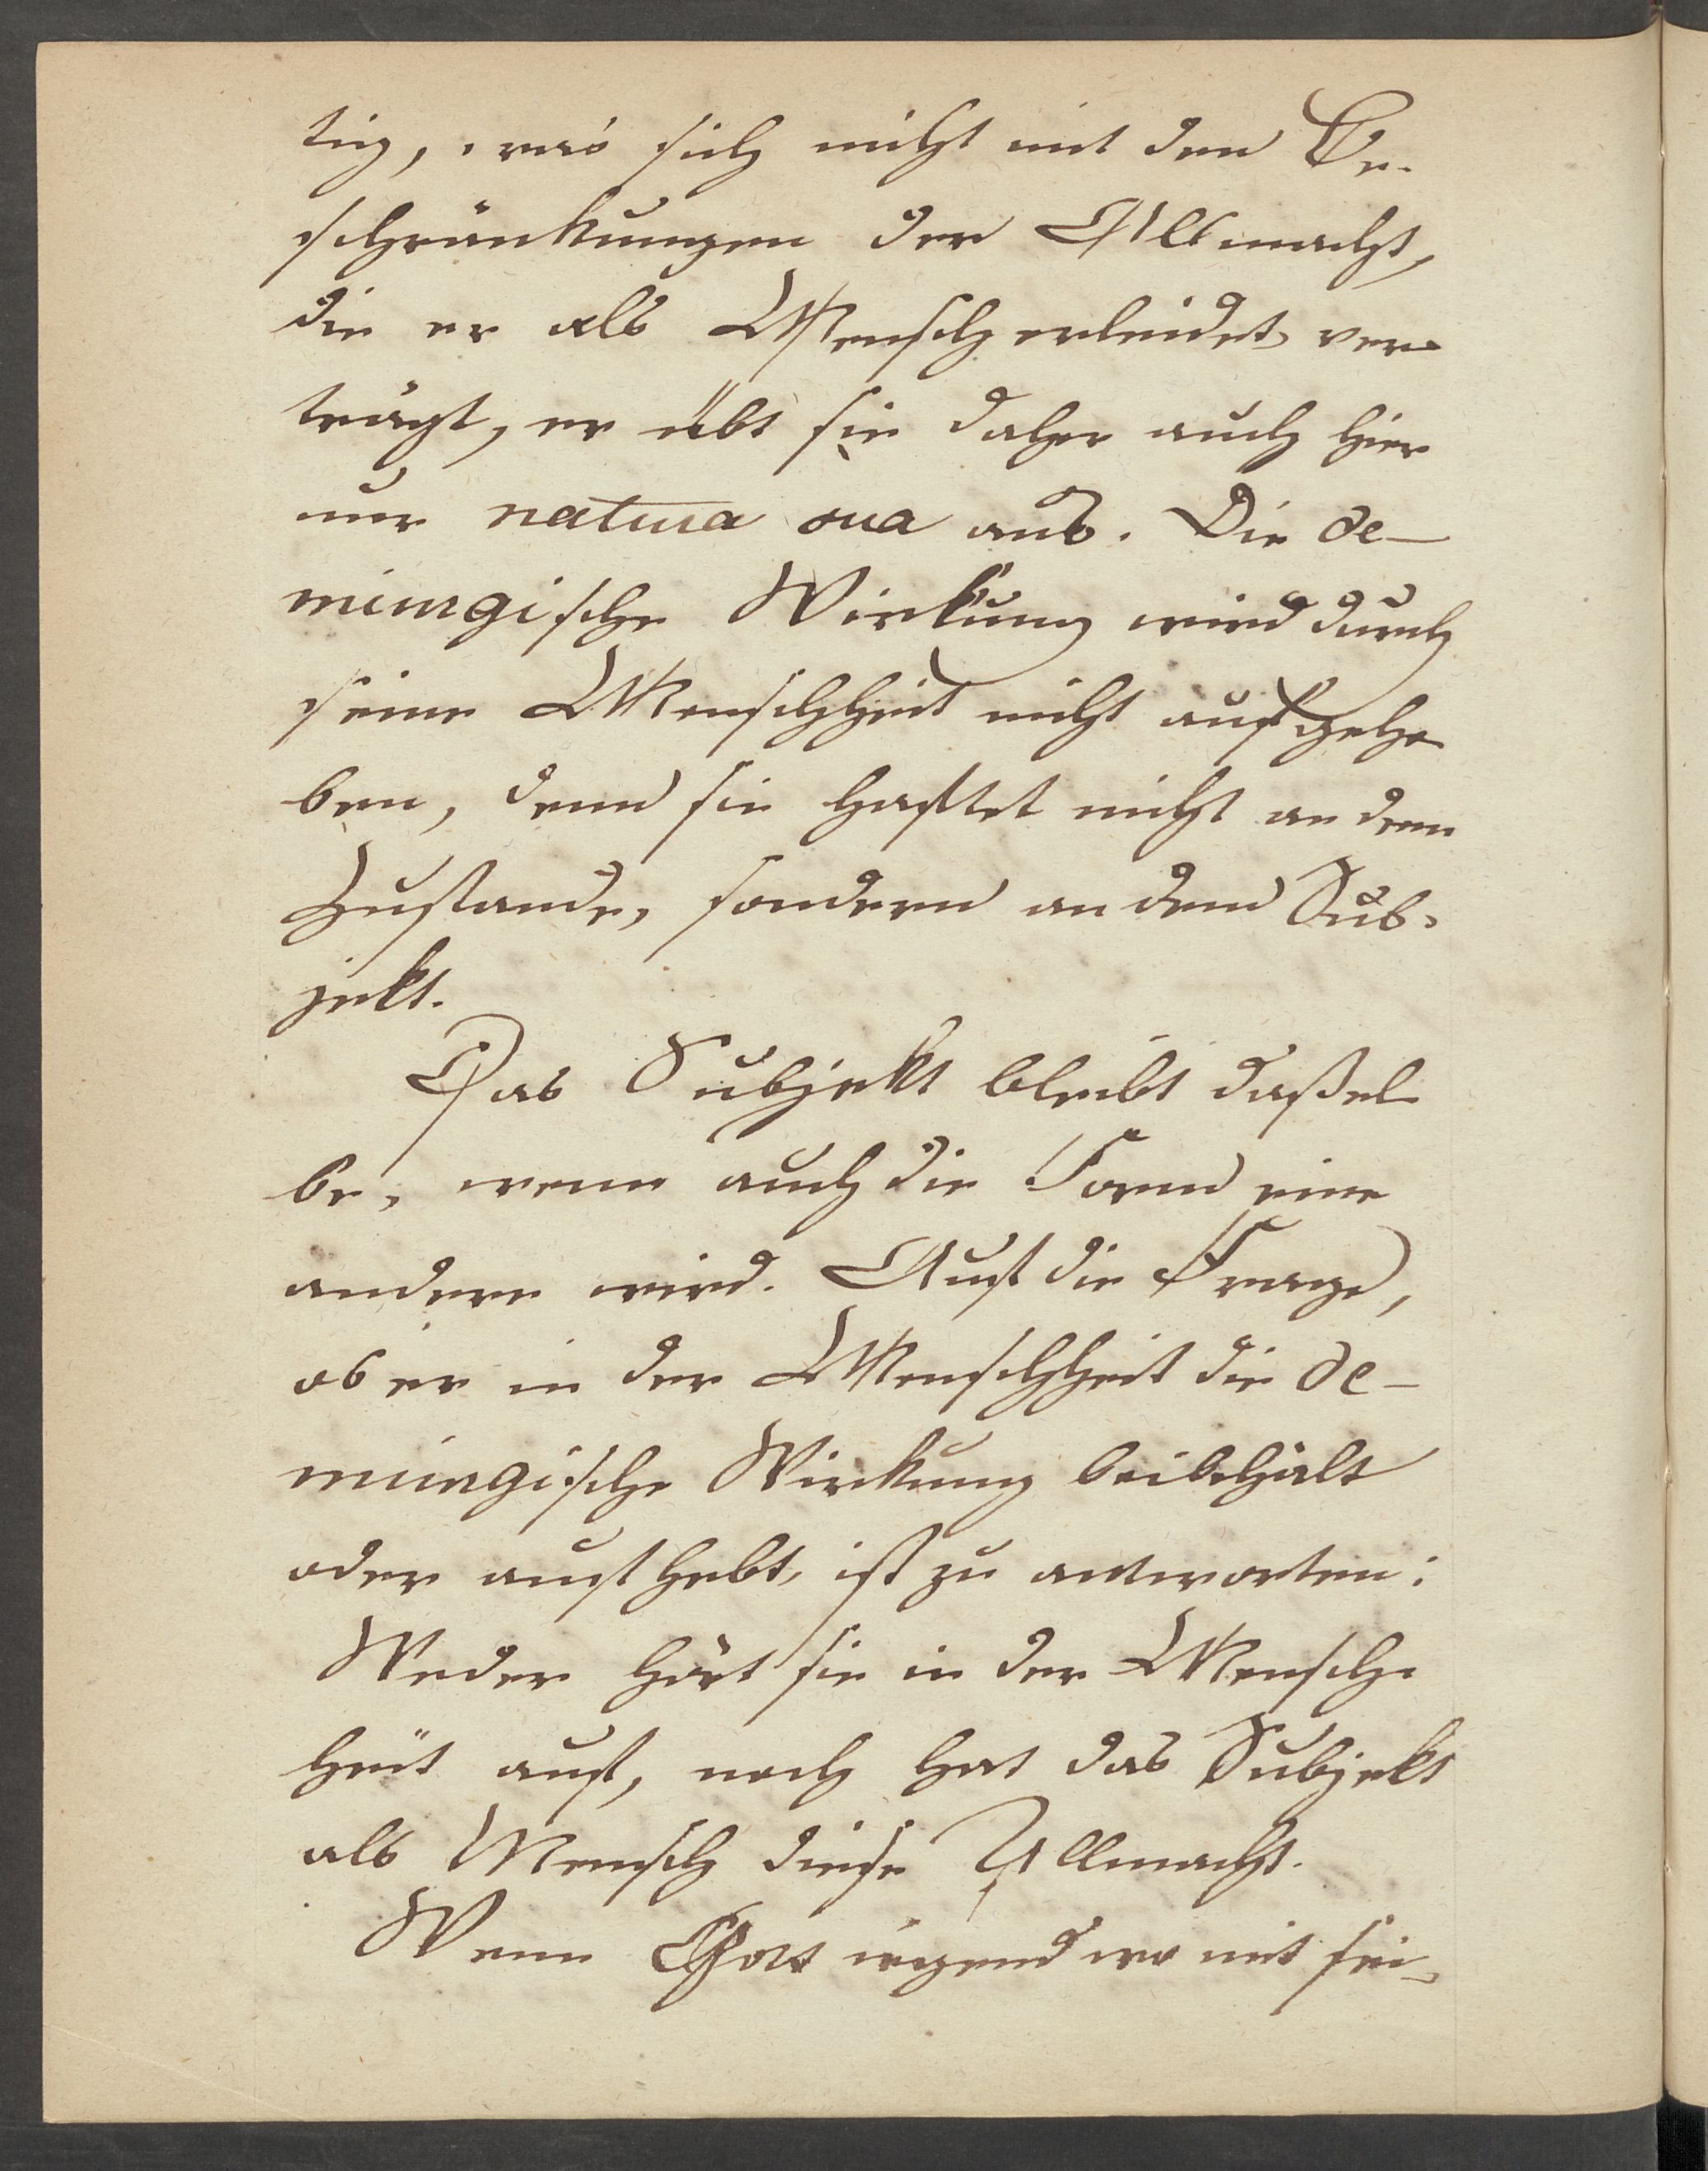 tig, was sich nicht mit den Be-
schränkungen der Allmacht,
die er als Mensch erleidet ver-
trägt, er übt sie daher auch hier
nur natura sua aus. Die de-
miurgische Wirkung wird durch
seine Menschheit nicht aufgeho
ben, denn sie haftet nicht an dem
Zustande, sondern an dem Sub-
jekt.
Das Subjekt bleibt daßel
be, wenn auch die Form eine
andere wird. Auf die Frage,
ob er in der Menschheit die de-
miurgische Wirkung beibehält
oder aufhebt, ist zu antworten:
Weder hört sie in der Mensch-
heit auf, noch hat das Subjekt
als Mensch diese Allmacht.
Wenn Gott irgend wo mit sei-